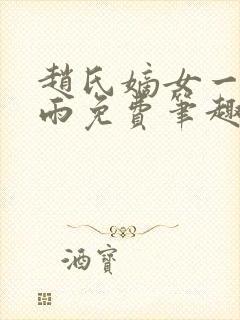 趙氏嫡女一
雨免費筆趣
酒寶